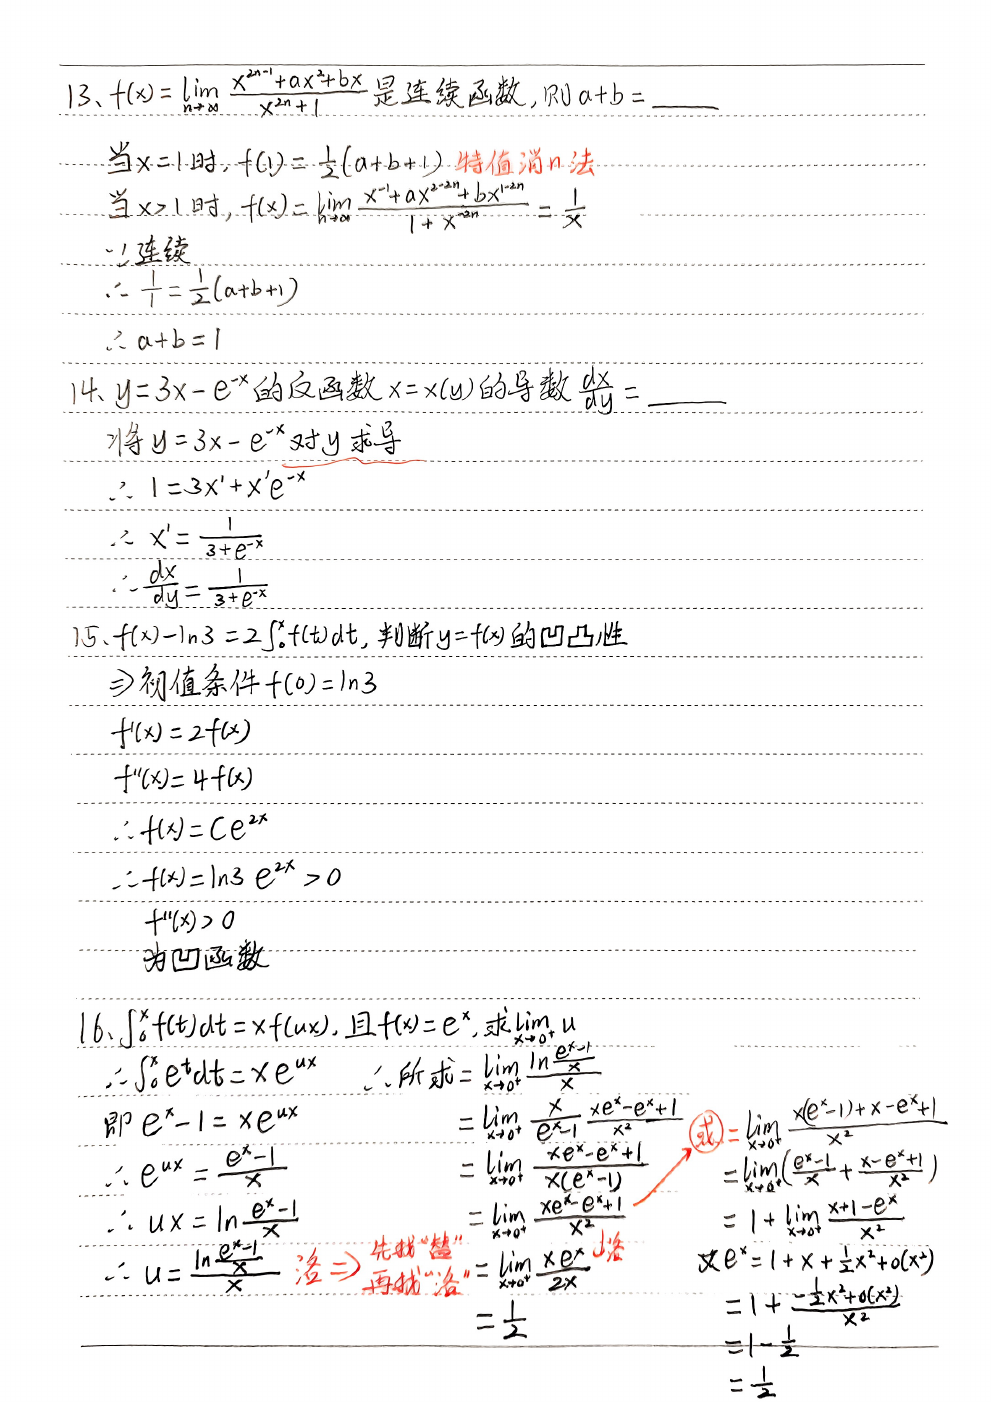 13、f(x)=lim n→∞ (x^{2n-1}+ax²+bx)/(x^{2n}+1) 是连续函数,则a+b=____
当x=1时,f(1)=½(a+b+1) 特值消n法
当x>1时,f(x)=lim n→∞ (x^{-1}+ax^{2-2n}+bx^{1-2n})/(1+x^{-2n})=1/x
∵连续
∴ 1/1=½(a+b+1)
∴ a+b=1
14、y=3x-e^{-x}的反函数x=x(y)的导数 dx/dy=____
将y=3x-e^{-x}对y求导
∴ 1=3x'+x'e^{-x}
∴ x'=1/(3+e^{-x})
∴ dx/dy=1/(3+e^{-x})
15、f(x)-ln3=2∫₀ˣf(t)dt,判断y=f(x)的凹凸性
⇒初值条件f(0)=ln3
f'(x)=2f(x)
f''(x)=4f(x)
∴f(x)=Ce^{2x}
∴f(x)=ln3 e^{2x}>0
f''(x)>0
为凹函数
16、∫₀ˣf(t)dt=xf(ux),且f(x)=e^x,求lim x→0⁺ u
∴∫₀ˣe^t dt=xe^{ux}
即 e^x-1=xe^{ux}
∴ e^{ux}=(e^x-1)/x
∴ ux=ln (e^x-1)/x
∴ u=(ln (e^x-1)/x)/x 洛⇒ 先找"替"
再找"洛"
∴所求=lim x→0⁺ (ln (e^x-1)/x)/x
=lim x→0⁺ x/(e^x-1) (xe^x-e^x+1)/x²
=lim x→0⁺ (xe^x-e^x+1)/(x(e^x-1))
=lim x→0⁺ (xe^x-e^x+1)/x²
↓洛
=lim x→0⁺ xe^x/2x
=½
或=lim x→0⁺ (x(e^x-1)+x-e^x+1)/x²
=lim x→0⁺((e^x-1)/x+(x-e^x+1)/x²)
=1+lim x→0⁺ (x+1-e^x)/x²
又e^x=1+x+½x²+o(x²)
=1+(-½x²+o(x²))/x²
=1-½
=½